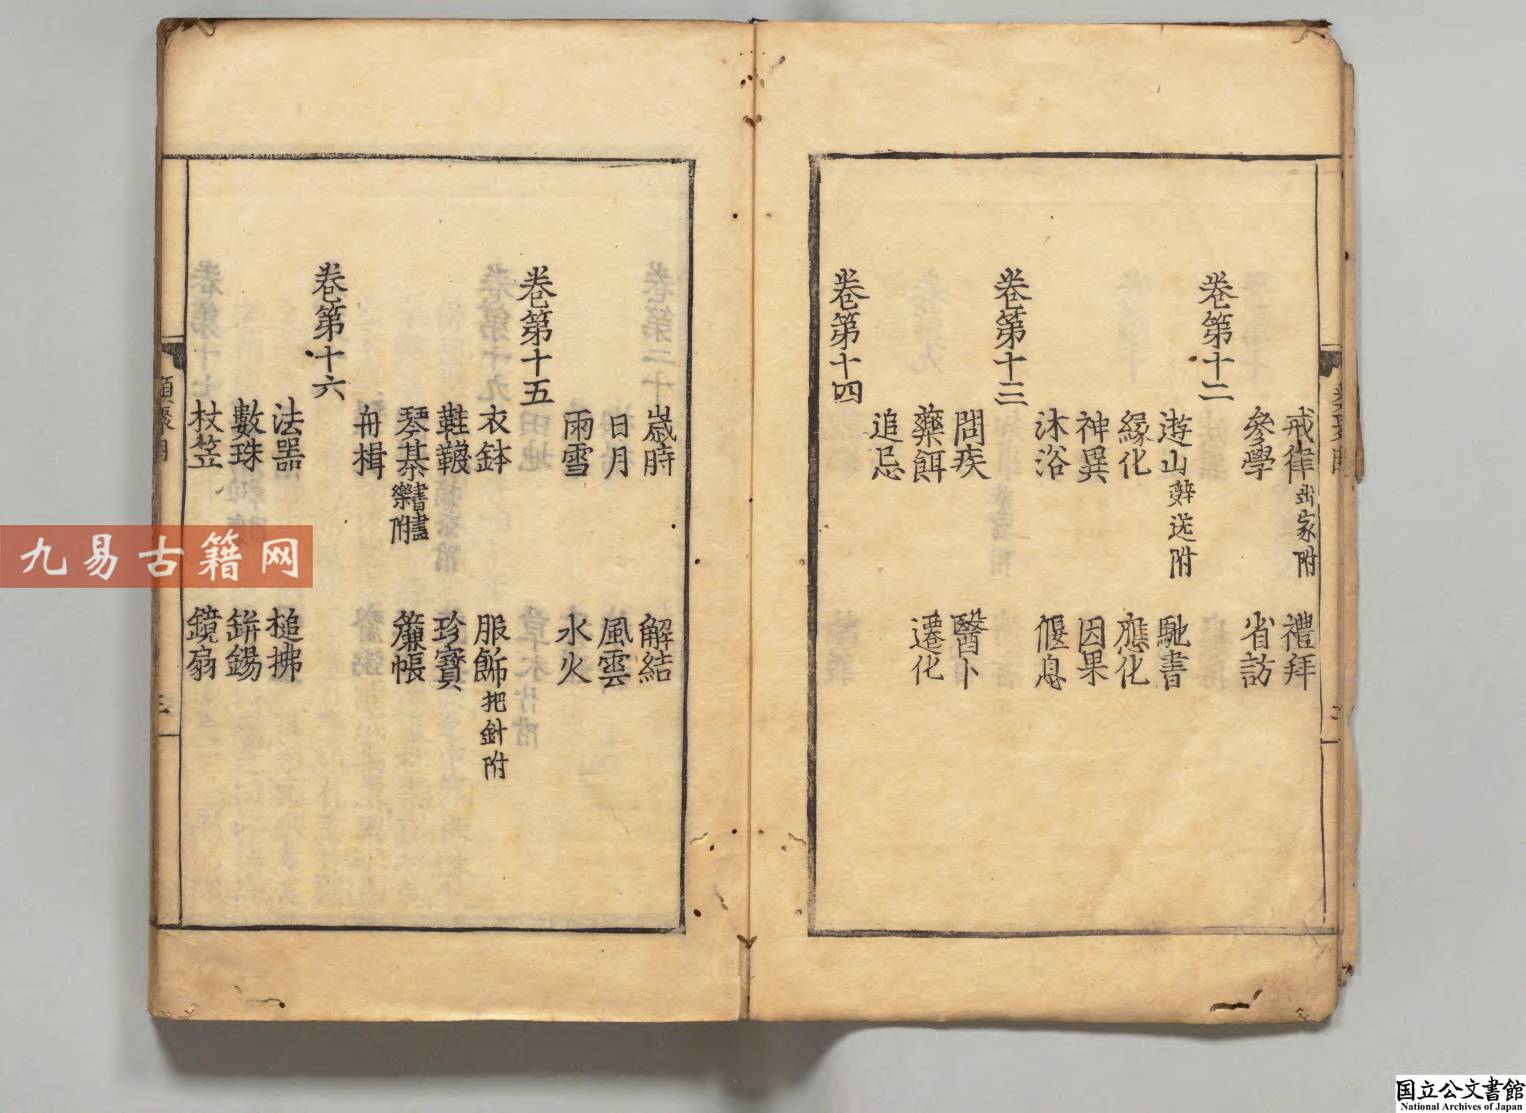 戒律出家附 禮拜
參學 省訪
卷第十二
遊山辭送附 馳書
緣化 應化
神異 因果
沐浴 偃息
卷第十三
問疾 醫卜
藥餌 遷化
追忌
卷第十四
歲時 解結
日月 風雲
雨雪 水火
卷第十五
衣鉢 服飾把針附
鞋韈 珍寶
琴棊書畫樂附 簾帳
舟楫
卷第十六
法器 槌拂
數珠 鉼錫
杖笠 鏡扇
類聚目
三
九易古籍网
国立公文書館
National Archives of Japan